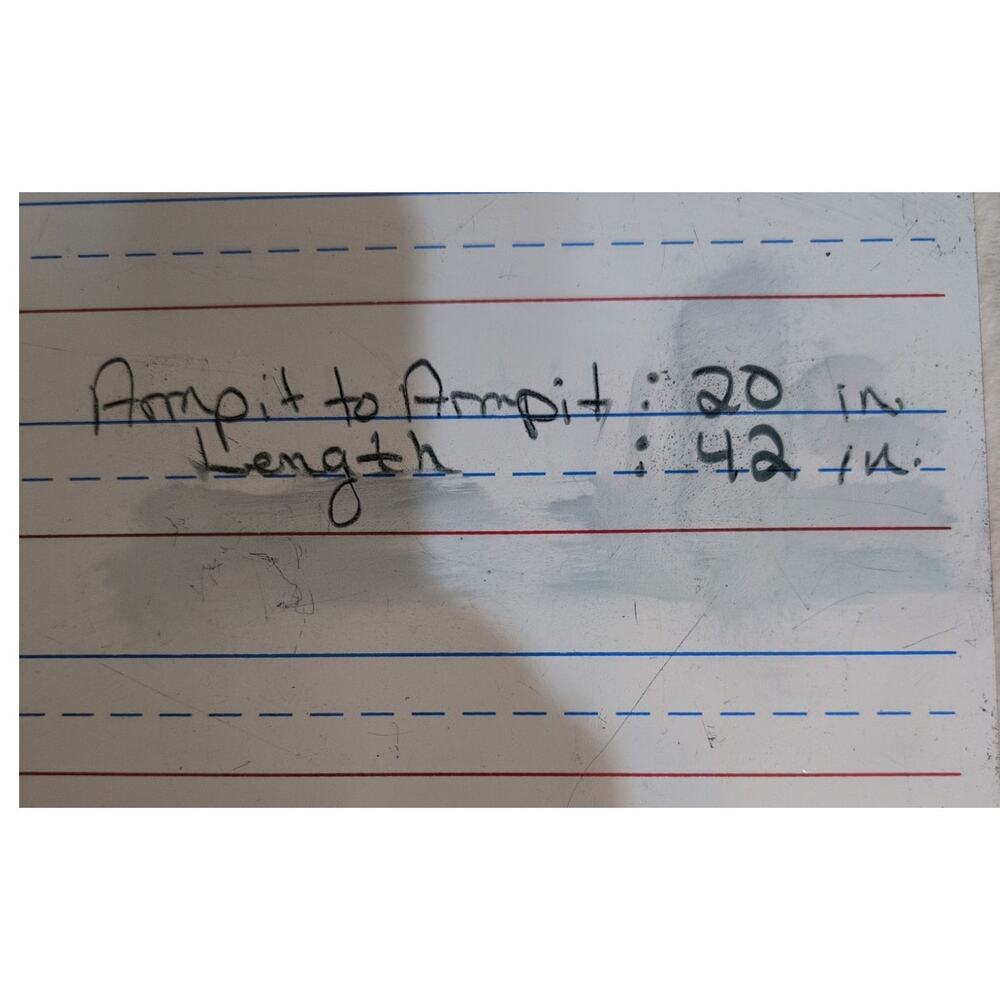 Armpit to Armpit : 20 in.
Length : 42 in.